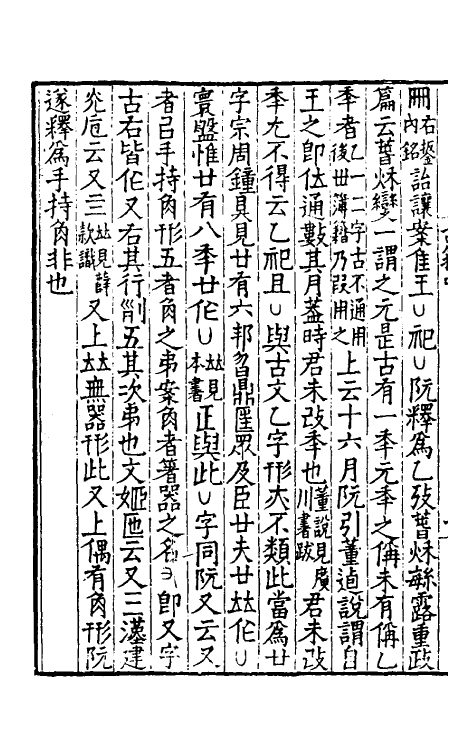 冊右鋬內銘詒讓案隹王∪祀∪阮釋爲乙攷萅秌緐露重政
篇云萅秌變一謂之元是古有一秊元秊之偁未有偁乙
秊者乙一二字古不通用後世簿籍乃叚用之上云十六月阮引董逌說謂自
王之卽位通數其月葢時君未改秊也董說見廣川書跋君未改
秊尢不得云乙祀且∪與古文乙字形亦不類此當爲廿
字宗周鐘具見廿有六邦曶鼎匡眾及臣廿夫廿𠀤作∪
寰盤惟廿有八秊廿作∪𠀤見本書正與此∪字同阮又云又
者㠯手持肉形五者肉之弟案肉者箸器之名卽又字
古右皆作又右其行𠛱五其次弟也文姬匜云又三漢建
光卮云又三𠀤見薛款識又上𠀤無器形此又上偶有肉形阮
遂釋爲手持肉非也